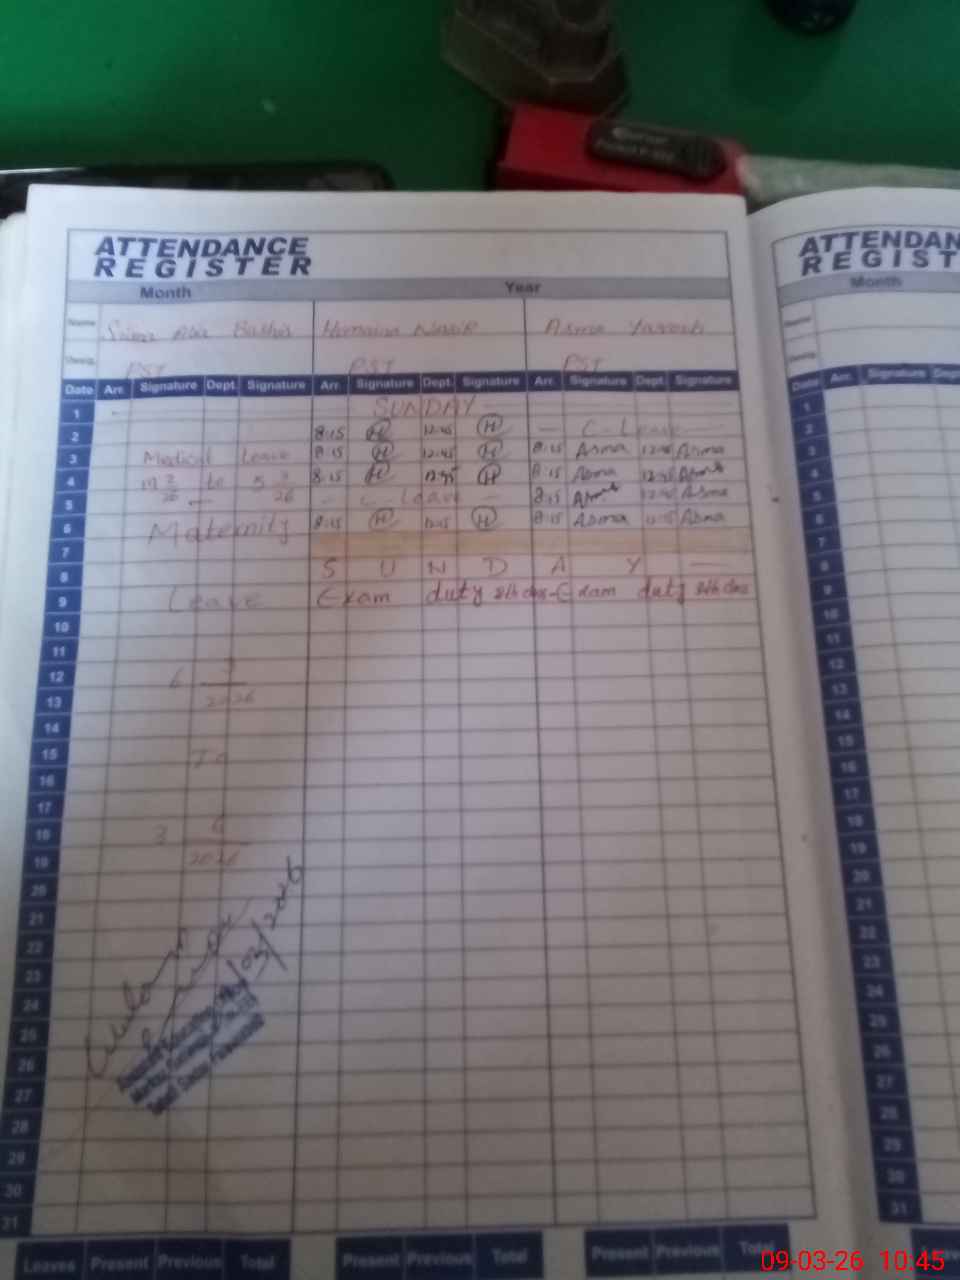 ATTENDANCE
REGISTER
Month Year
Name Bashir Humaira Nasir Asma
Desig. PST PST PST
Date Arr. Signature Dept. Signature Arr. Signature Dept. Signature Arr. Signature Dept. Signature
1 SUNDAY
2 8:15 H 12:45 H C-Leave
3 Medical Leave 8:15 H 12:45 H 8:15 Asma 12:45 Asma
4 to 5 8:15 H 12:45 H 8:15 Asma 12:45 Asma
5 C-Leave 8:15 Asma 12:45 Asma
6 Maternity 8:15 H H 8:15 Asma Asma
7
8 SUNDAY
9 Leave Exam duty 8th class Exam duty 8th class
10
11
12 6
13 2026
14
15 To
16
17
18 3
19 2026
20
21
22
23
24
25
26
27
28
29
30
31
Leaves Present Previous Total Present Previous Total Present Previous Total
ATTENDAN
REGIST
Month
Name
Desig.
Date Arr. Signature
1
2
3
4
5
6
7
8
9
10
11
12
13
14
15
16
17
18
19
20
21
22
23
24
25
26
27
28
29
30
31
09-03-26 10:45